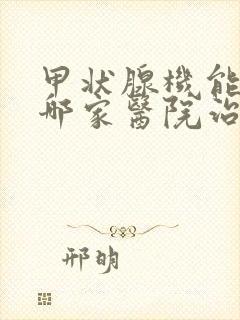 甲状腺機能
哪家醫院治
邢明